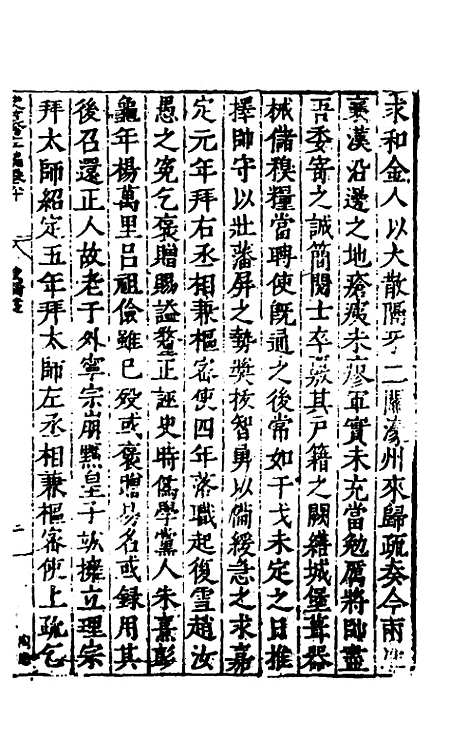 求和金人以大散隔牙二關濠州來歸疏奏今兩
襄漢沿邊之地瘡痍未瘳軍實未充當勉厲將帥盡
吾委寄之誠簡閱士卒覈其戶籍之闕繕城堡葺器
械儲糗糧當聘使旣通之後常如干戈未定之日推
擇帥守以壯藩屏之勢獎拔智勇以備緩急之求嘉
定元年拜右丞相兼樞密使四年落職起復雪趙汝
愚之寃乞褒贈賜謚釐正誣史時偽學黨人朱熹彭
龜年楊萬里呂祖儉雖已歿或褒贈易名或録用其
後召還正人故老于外寧宗崩黜皇子竑擁立理宗
拜太師紹定五年拜太師左丞相兼樞密使上疏乞